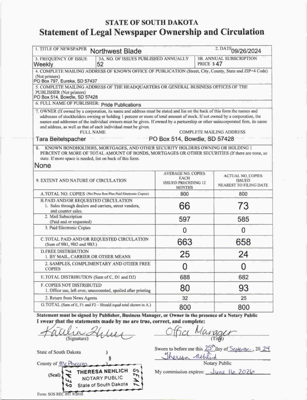 STATE OF SOUTH DAKOTA
Statement of Legal Newspaper Ownership and Circulation
1. TITLE OF NEWSPAPER Northwest Blade 2. DATE 09/26/2024
3. FREQUENCY OF ISSUE Weekly 3A. NO. OF ISSUES PUBLISHED ANNUALLY 52 3B. ANNUAL SUBSCRIPTION PRICE $ 47
4. COMPLETE MAILING ADDRESS OF KNOWN OFFICE OF PUBLICATION (Street, City, County, State and ZIP+4 Code)
(Not printers)
PO Box 797, Eureka, SD 57437
5. COMPLETE MAILING ADDRESS OF THE HEADQUARTERS OR GENERAL BUSINESS OFFICES OF THE
PUBLISHER (Not printers)
PO Box 514, Bowdle, SD 57428
6. FULL NAME OF PUBLISHER: Pride Publications
7. OWNER (If owned by a corporation, its name and address must be stated and listed on the back of this form the names and
addresses of stockholders owning or holding 1 percent or more of total amount of stock. If not owned by a corporation, the
names and addresses of the individual owners must be given. If owned by a partnership or other unincorporated firm, its name
and address, as well as that of each individual must be given).
FULL NAME COMPLETE MAILING ADDRESS
Tara Beitelspacher PO Box 514, Bowdle, SD 57428
8. KNOWN BONDHOLDERS, MORTGAGES, AND OTHER SECURITY HOLDERS OWNING OR HOLDING 1
PERCENT OR MORE OF TOTAL AMOUNT OF BONDS, MORTGAGES OR OTHER SECURITIES (If there are none, so
state. If more space is needed, list on back of this form.
None
9. EXTENT AND NATURE OF CIRCULATION
AVERAGE NO. COPIES EACH ISSUED PRECEDING 12 MONTHS
ACTUAL NO. COPIES ISSUED NEAREST TO FILING DATE
A. TOTAL NO. COPIES 800 800
B. PAID AND/OR REQUESTED CIRCULATION
1. Sales through dealers and carriers, street vendors,
and counter sales. 66 73
2. Mail Subscription
(Paid and or requested) 597 585
3. Paid Electronic Copies 0 0
C. TOTAL PAID AND/OR REQUESTED CIRCULATION
(Sum of 9B1, 9B2 and 9B3.) 663 658
D. FREE DISTRIBUTION
1. BY MAIL, CARRIER OR OTHER MEANS 25 24
2. SAMPLES, COMPLIMENTARY AND OTHER FREE
COPIES 0 0
E. TOTAL DISTRIBUTION (Sum of C, D1 and D2) 688 682
F. COPIES NOT DISTRIBUTED
1. Office use, left over, unaccounted, spoiled after printing 80 93
2. Return from News Agents 32 25
G. TOTAL (Sum of E, F1 and F2 - Should equal total shown in A.) 800 800
Statement must be signed by Publisher, Business Manager, or Owner in the presence of a Notary Public
I swear that the statements made by me are true, correct, and complete:
Office Manager
(Signature) (Title)
State of South Dakota
Sworn to before me this day of September, 20 24
County of
Theresa Nehlich
Notary Public
My commission expires June 16 2026
SEAL
THERESA NEHLICH
NOTARY PUBLIC
State of South Dakota
SEAL